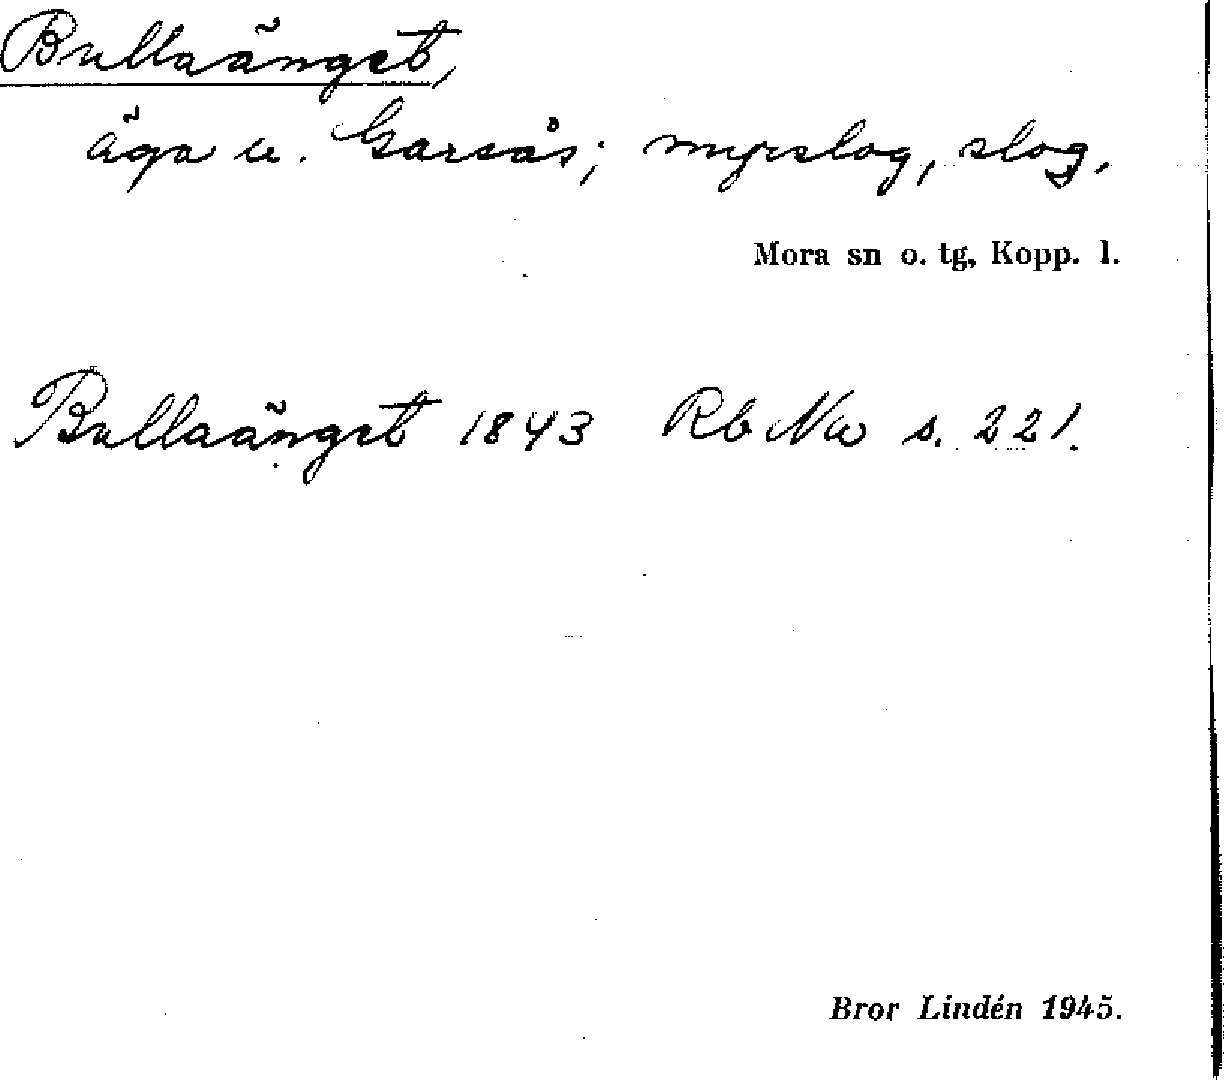 Bullaänget,
äga u. Garsås; myrslog, slog.
Mora sn o. tg, Kopp. l.
Bullaänget 1843 Rb Nu s. 221.
Bror Lindén 1945.